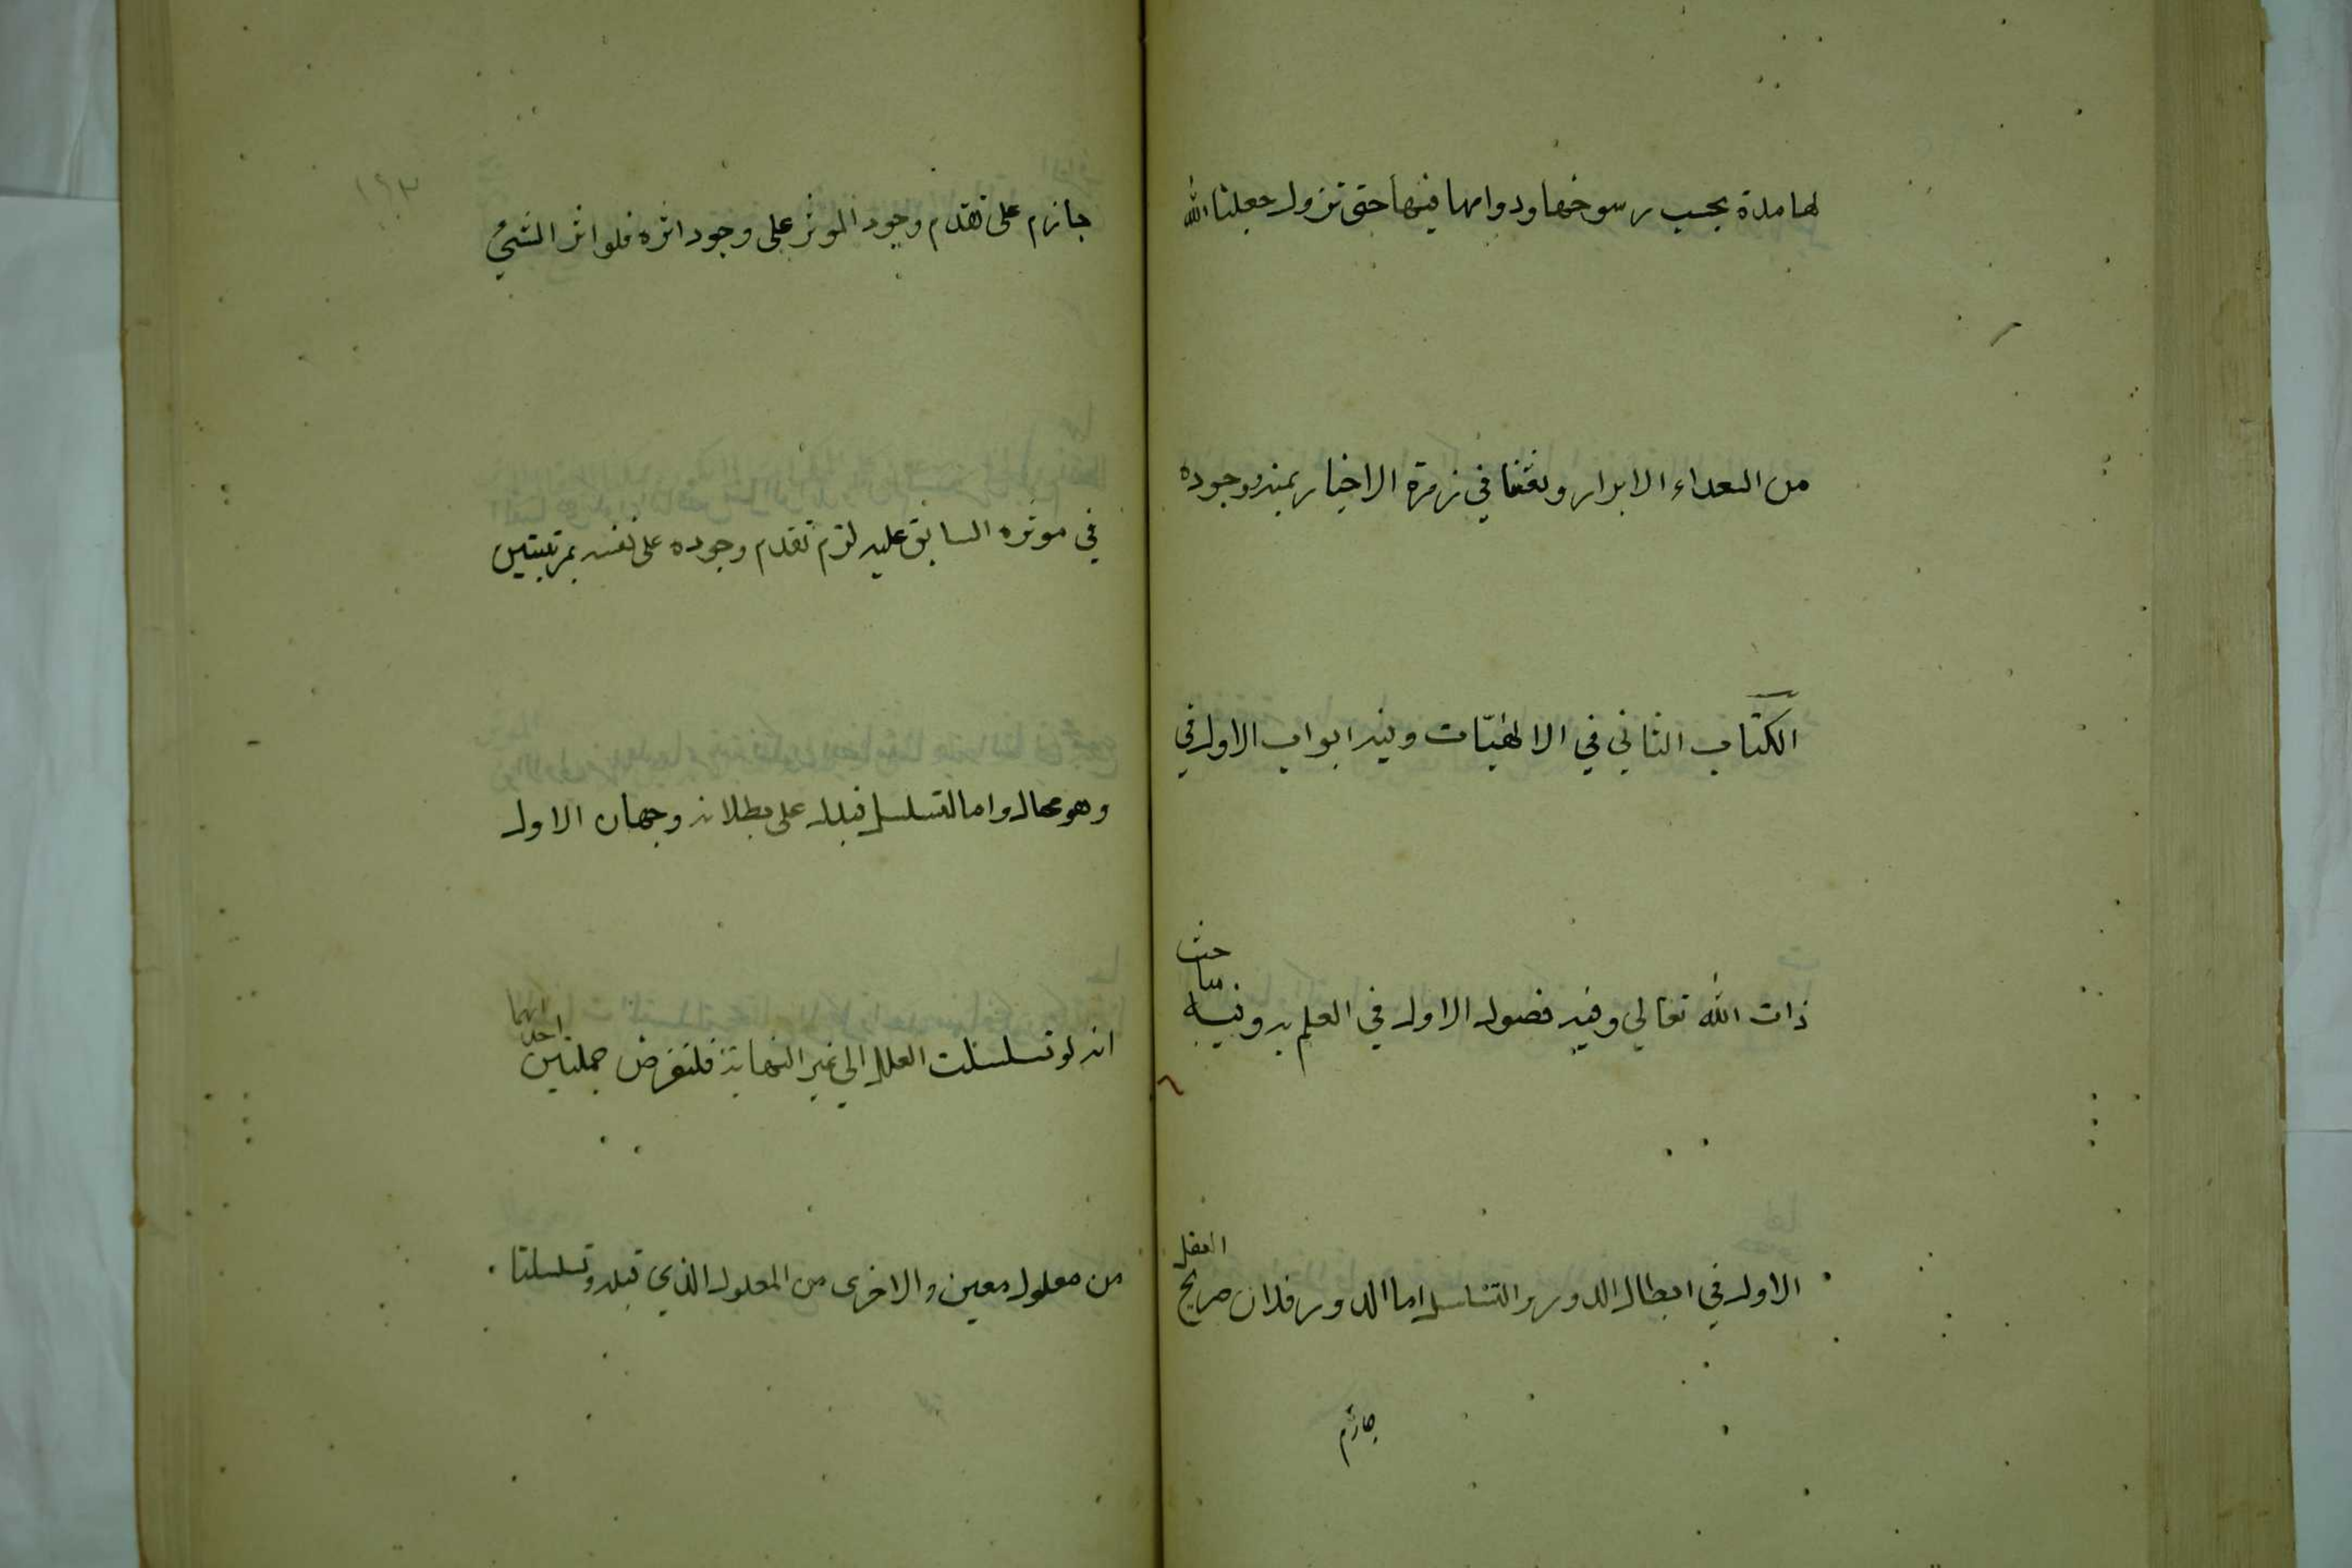 لها مدة بحسب رسوخها ودوامها فيها حتى تزول جعلنا الله
من السعداء الابرار وبعثنا في زمرة الاخيار بمنه وجوده
الكتاب الثاني في الالهيّات وفيه ابواب الاول في
ذات الله تعالي وفيه فصول الاول في العلم به وفيه مباحث
الاول في ابطال الدور والتسلسل اما الدور فلان صريح العقل
جازم
١٩٣
جازم على تقدم وجود الموثر على وجود اثره فلو اثر الشيئ
في موثره السابق عليه لزم تقدم وجوده على نفسه بمرتبتين
وهو محال واما التسلسل فيدل على بطلانه وجهان الاول
انه لو تسلسلت العلل الي غير النهاية فلنفرض جملتين احداهما
من معلول معين والاخرى من المعلول الذي قبله وتسلسلتا